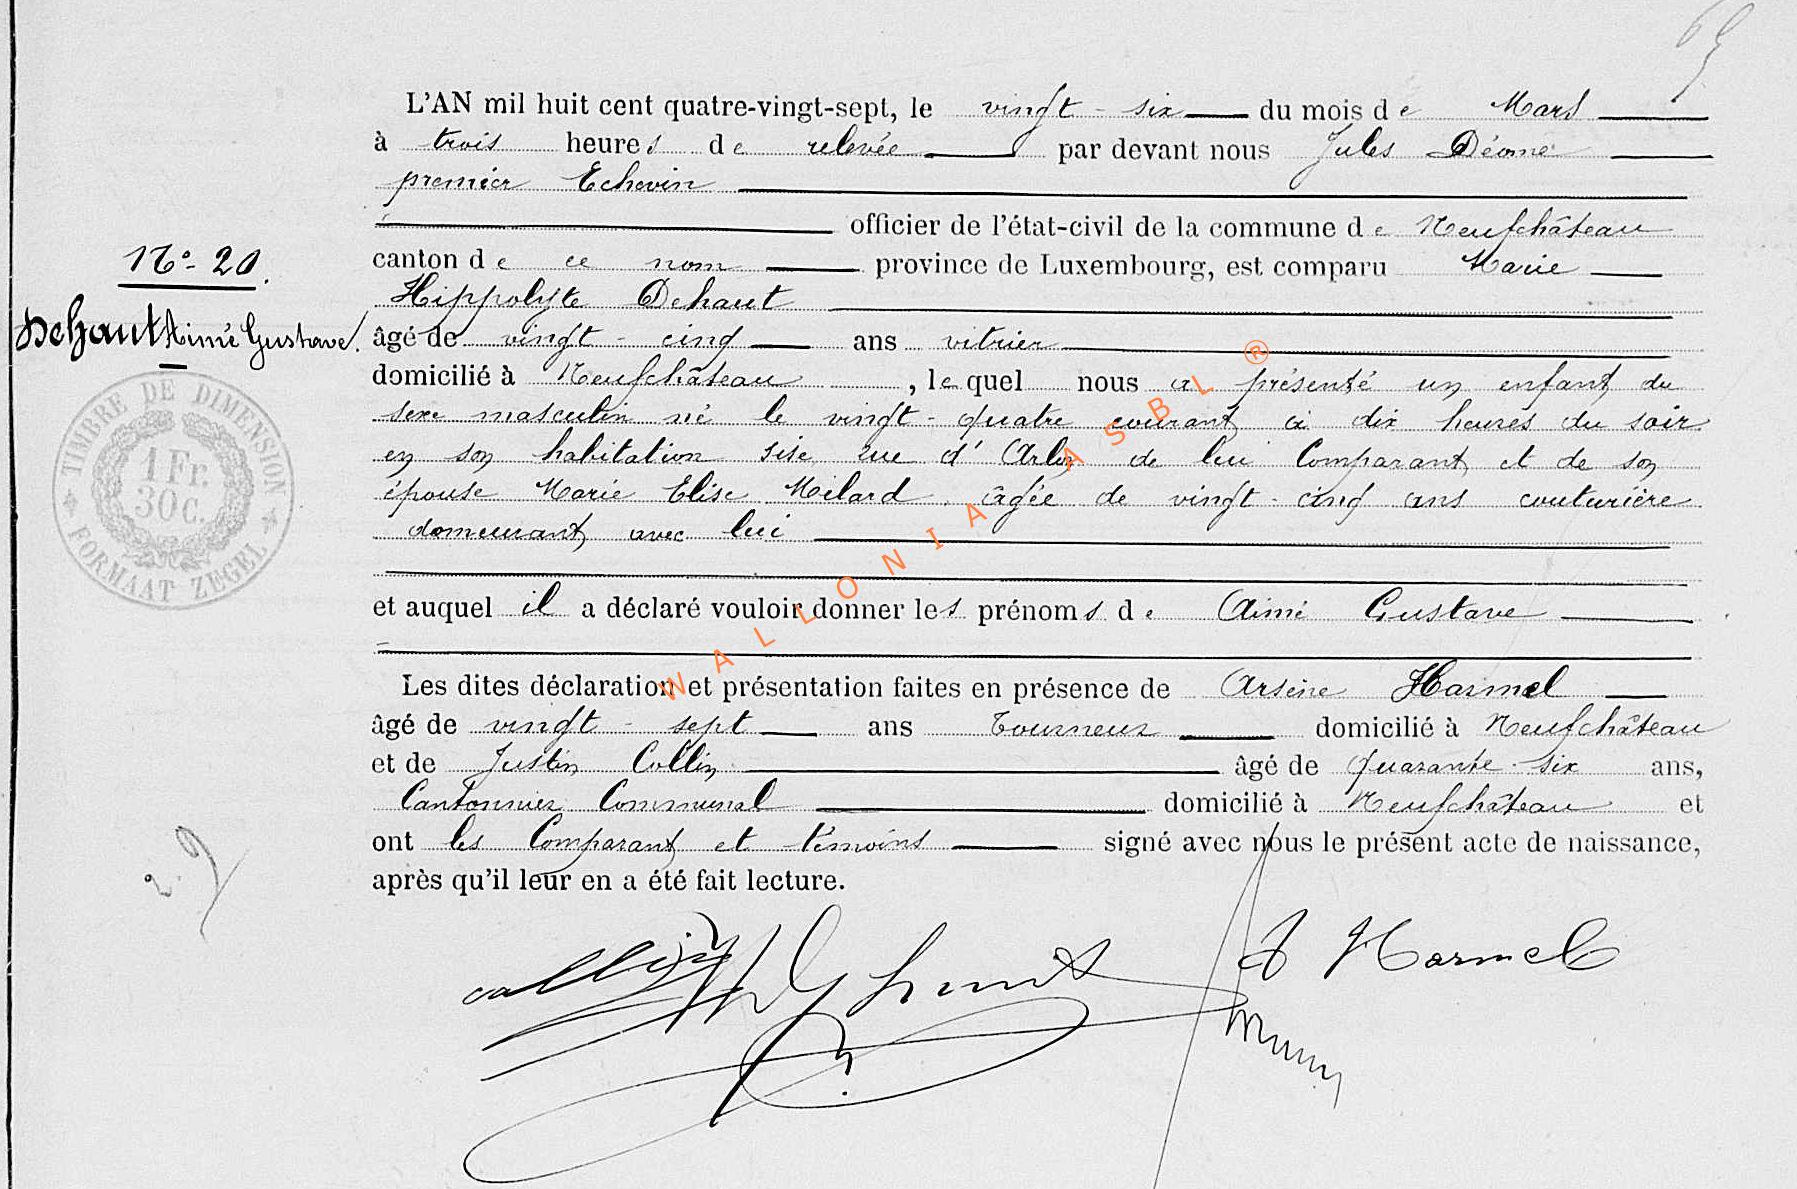 65
L'AN mil huit cent quatre-vingt-sept, le vingt-six du mois de Mars
à trois heures de relevée par devant nous Jules Déome
premier Echevin
officier de l'état-civil de la commune de Neufchâteau
canton de ce nom province de Luxembourg, est comparu Marie
Hippolyte Dehaut
âgé de vingt-cinq ans vitrier
domicilié à Neufchâteau, lequel nous a présenté un enfant du
sexe masculin né le vingt-quatre courant à dix heures du soir
en son habitation sise rue d'Arlon de lui Comparant et de son
épouse Marie Elise Milard âgée de vingt-cinq ans couturière
demeurant avec lui
et auquel il a déclaré vouloir donner les prénoms de Aimé Gustave
Les dites déclaration et présentation faites en présence de Arsène Harmel
âgé de vingt-sept ans Tourneur domicilié à Neufchâteau
et de Justin Collin âgé de quarante-six ans,
Cantonnier Communal domicilié à Neufchâteau et
ont les Comparant et témoins signé avec nous le présent acte de naissance,
après qu'il leur en a été fait lecture.
N° 20.
Dehaut Aimé Gustave.
TIMBRE DE DIMENSION
1 Fr.
30 C.
FORMAAT ZEGEL
WALLONIA ASBL ®
Collin H Dehaut A Harmel